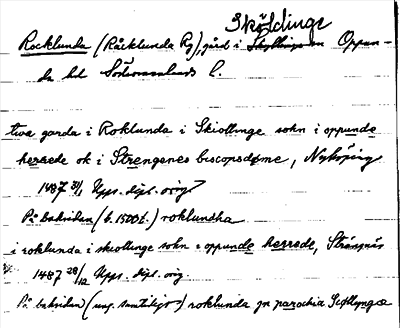 Sköldinge
Rocklunda (Råcklunda Rg), gård i Skyllinge sn Oppun-
da hd Södermanlands l.
twa garda i Roklunda i Skiollinge sokn i oppunde
herrede ok i Strengenes biscopsdøme, Nyköping
1487 31/1 Upps. dipl. orig.
På baksidan (b. 1500 t.) roklundha
i roklunda i skiollinge sokn i oppunde herrede, Strängnäs
1487 28/12 Upps. dipl. orig.
På baksidan (ung. samtidigt) roklunda jn parochia